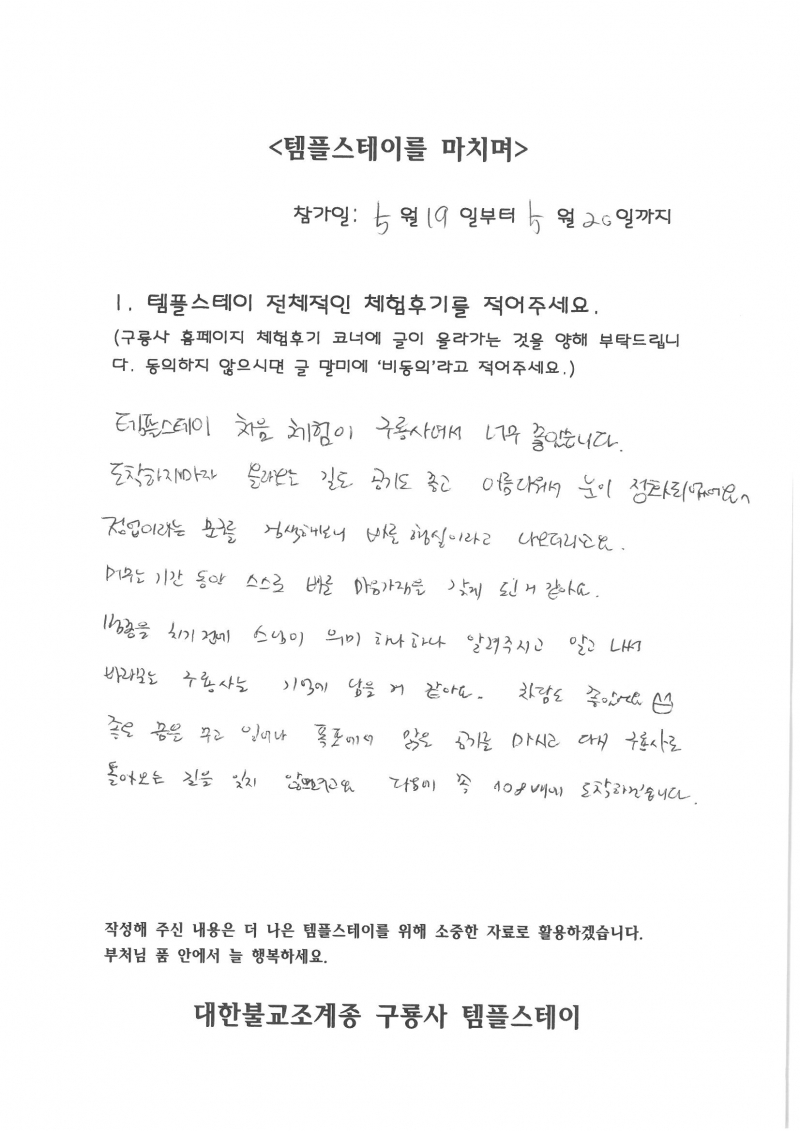 <템플스테이를 마치며>
참가일: 5 월 19 일부터 5 월 20 일까지
1. 템플스테이 전체적인 체험후기를 적어주세요.
(구룡사 홈페이지 체험후기 코너에 글이 올라가는 것을 양해 부탁드립니
다. 동의하지 않으시면 글 말미에 '비동의'라고 적어주세요.)
템플스테이 처음 체험이 구룡사여서 너무 좋았습니다.
도착하자마자 올라오는 길도 공기도 좋고 아름다워서 눈이
정업이라는 문구를 검색해보니 바른 행실이라고 나오더라고요.
머무는 기간 동안 스스로 바른 마음가짐을 갖게 된 거 같아요.
범종을 치기 전에 스님이 의미 하나하나 알려주시고 알고 나서
바라보는 구룡사는 기억에 남을 거 같아요. 차담도 좋았어요
좋은 꿈을 꾸고 일어나 폭포에서 맑은 공기를 마시고 다시 구룡사로
돌아오는 길을 잊지 않으려고요 다음에 꼭 108배에 도착하겠습니다.
작성해 주신 내용은 더 나은 템플스테이를 위해 소중한 자료로 활용하겠습니다.
부처님 품 안에서 늘 행복하세요.
대한불교조계종 구룡사 템플스테이